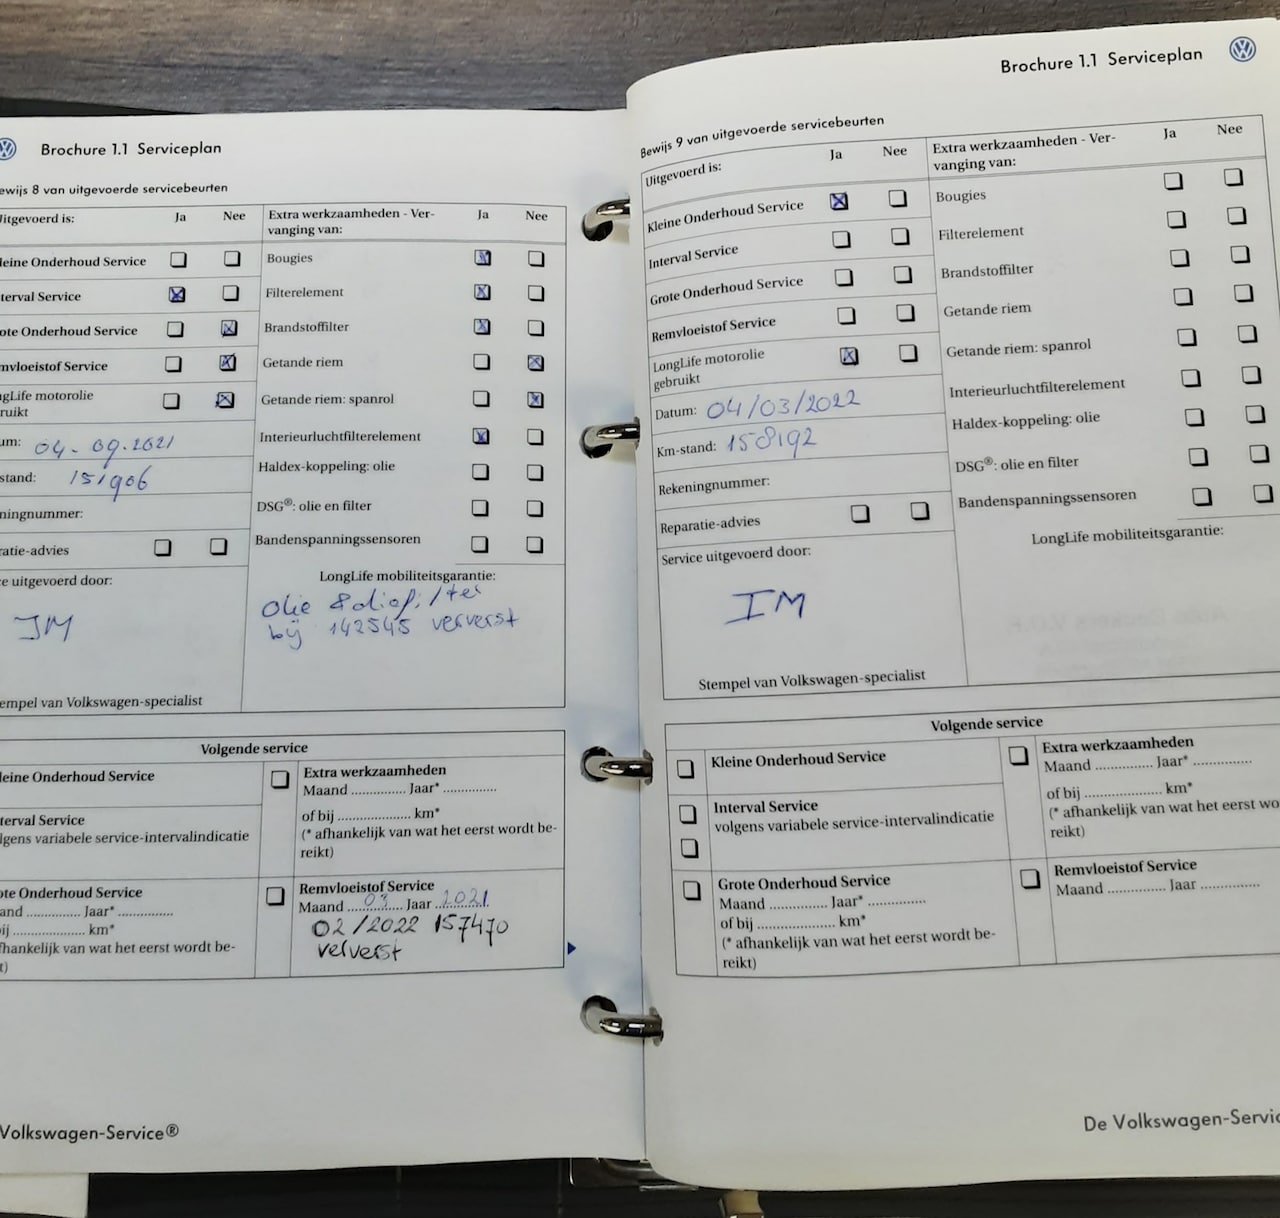 Brochure 1.1 Serviceplan
ewijs 8 van uitgevoerde servicebeurten
itgevoerd is:
Ja
Nee
Extra werkzaamheden - Ver-
vanging van:
Ja
Nee
leine Onderhoud Service
Bougies
terval Service
Filterelement
ote Onderhoud Service
Brandstoffilter
mvloeistof Service
Getande riem
gLife motorolie
ruikt
Getande riem: spanrol
um: 04-09.2021
Interieurluchtfilterelement
stand: 151906
Haldex-koppeling: olie
ningnummer:
DSG®: olie en filter
ratie-advies
Bandenspanningssensoren
e uitgevoerd door:
LongLife mobiliteitsgarantie:
olie
bij 142545 ververst
empel van Volkswagen-specialist
Volgende service
leine Onderhoud Service
Extra werkzaamheden
Maand .............. Jaar* ..............
terval Service
lgens variabele service-intervalindicatie
of bij ................... km*
(* afhankelijk van wat het eerst wordt be-
reikt)
ote Onderhoud Service
and .............. Jaar* ..............
ij ................... km*
fhankelijk van wat het eerst wordt be-
t)
Remvloeistof Service
Maand 03 Jaar 2021
02/2022 157470
ververst
Volkswagen-Service®
Brochure 1.1 Serviceplan
Bewijs 9 van uitgevoerde servicebeurten
Uitgevoerd is:
Ja
Nee
Extra werkzaamheden - Ver-
vanging van:
Ja
Nee
Kleine Onderhoud Service
Bougies
Interval Service
Filterelement
Grote Onderhoud Service
Brandstoffilter
Remvloeistof Service
Getande riem
LongLife motorolie
gebruikt
Getande riem: spanrol
Datum: 04/03/2022
Interieurluchtfilterelement
Km-stand: 158192
Haldex-koppeling: olie
Rekeningnummer:
DSG®: olie en filter
Reparatie-advies
Bandenspanningssensoren
Service uitgevoerd door:
LongLife mobiliteitsgarantie:
IM
Stempel van Volkswagen-specialist
Volgende service
Kleine Onderhoud Service
Extra werkzaamheden
Maand .............. Jaar* ..............
Interval Service
volgens variabele service-intervalindicatie
of bij ................... km*
(* afhankelijk van wat het eerst wo
reikt)
Grote Onderhoud Service
Maand .............. Jaar* ..............
of bij ................... km*
(* afhankelijk van wat het eerst wordt be-
reikt)
Remvloeistof Service
Maand .............. Jaar ..............
De Volkswagen-Servic